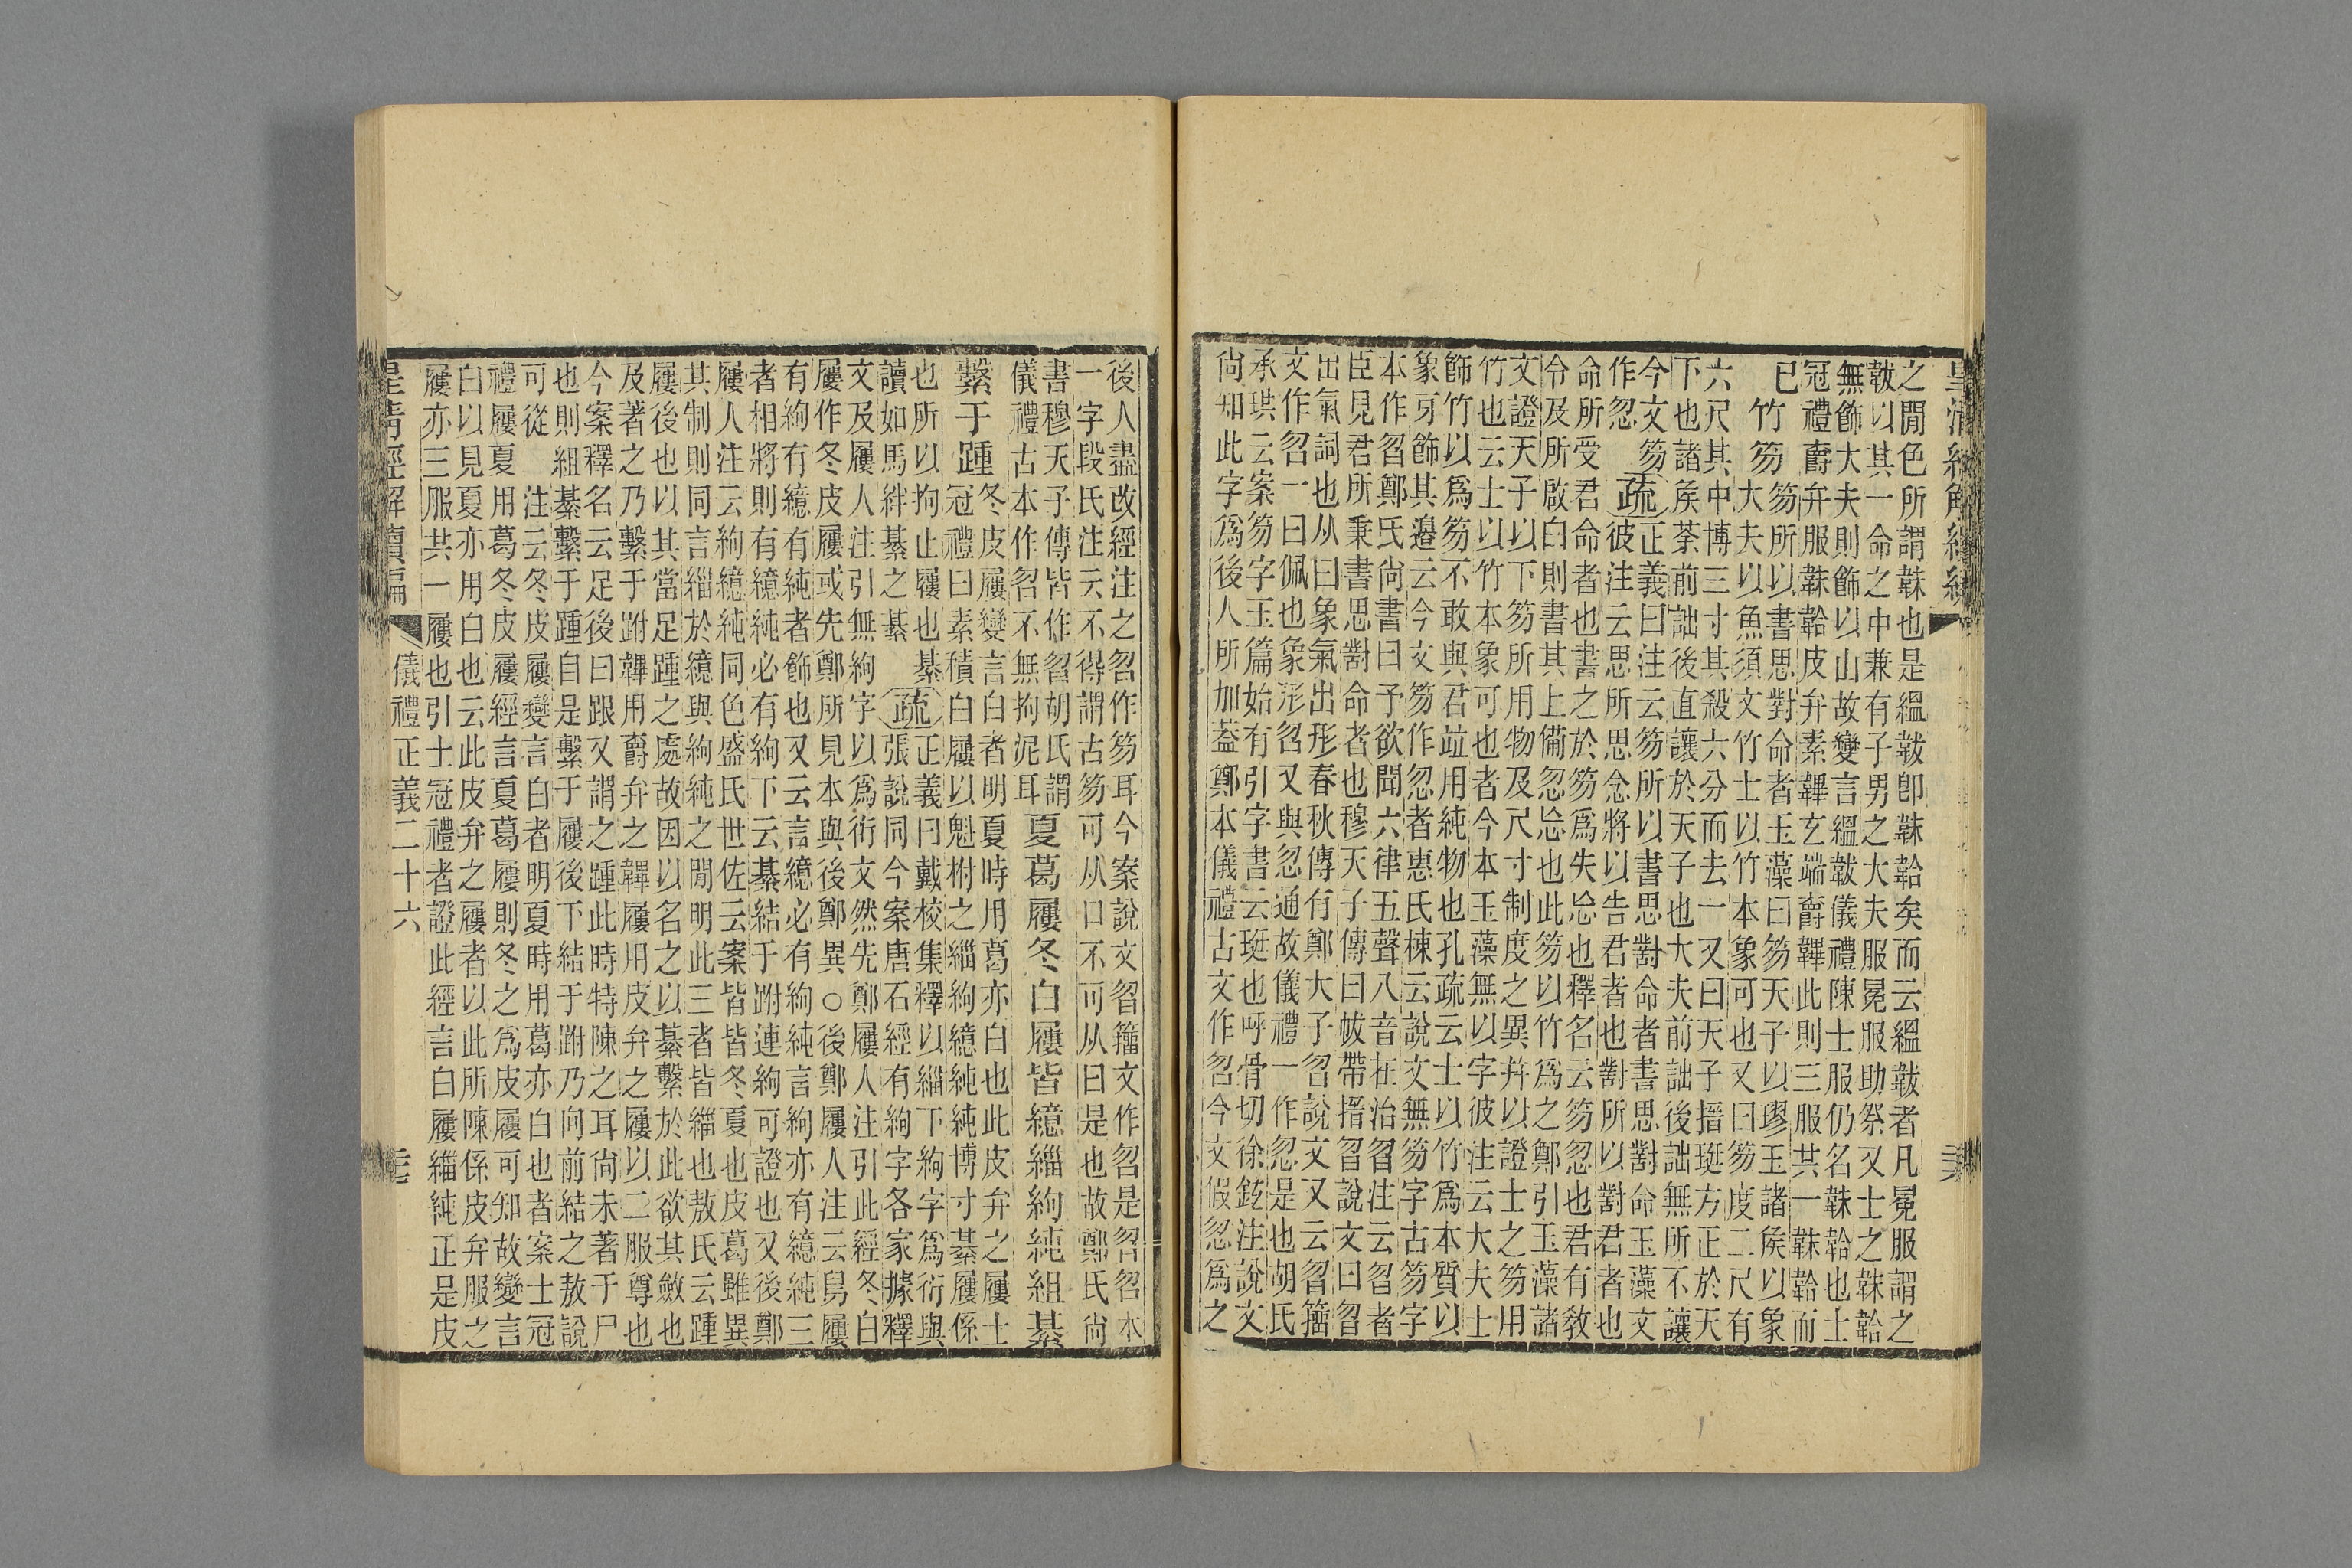 之閒色所謂韎也是縕韍卽韎韐矣而云縕韍者凡冕服謂之
韍以其一命之中兼有子男之大夫服冕服助祭又士之韎韐
無飾大夫則飾以山故變言縕韍儀禮陳士服仍名韎韐也士
冠禮爵弁服韎韐皮弁素韠玄端爵韠此則三服共一韎韐而
已
竹笏
笏所以書思對命者玉藻曰笏天子以璆玉諸矦以象
大夫以魚須文竹士以竹本象可也又曰笏度二尺有
六尺其中博三寸其殺六分而去一又曰天子搢珽方正於天
下也諸矦荼前詘後直讓於天子也大夫前詘後詘無所不讓
今文笏
作忽
疏
正義曰注云笏所以書思對命者書思對命玉藻文
彼注云思所思念將以告君者也對所以對君者也
命所受君命者也書之於笏爲失㤀也釋名云笏忽也君有敎
令及所啟白則書其上備忽㤀也此笏以竹爲之鄭引玉藻諸
文證天子以下笏所用物及尺寸制度之異幷以證士之笏用
竹也云士以竹本象可也者今本玉藻無以字彼注云大夫士
飾竹以爲笏不敢與君竝用純物也孔疏云士以竹爲本質以
象牙飾其邉云今文笏作忽者惠氏棟云說文無笏字古笏字
本作曶鄭氏尙書曰予欲聞六律五聲八音在治曶注云曶者
臣見君所秉書思對命者也穆天子傳曰帗帶搢曶說文曰曶
出氣詞也从曰象氣出形春秋傳有鄭大子曶說文又云曶籒
文作𠚴一曰佩也象形曶又與忽通故儀禮一作忽是也胡氏
承珙云案笏字玉篇始有引字書云珽也呼骨切徐鉉注說文
尙知此字爲後人所加葢鄭本儀禮古文作曶今文假忽爲之
後人盡改經注之曶作笏耳今案說文曶籒文作𠚴是曶𠚴本
一字段氏注云不得謂古笏可从口不可从曰是也故鄭氏尙
書穆天子傳皆作曶胡氏謂
儀禮古本作曶不無拘泥耳
夏葛屨冬白屨皆繶緇絇純組綦
繫于踵
冬皮屨變言白者明夏時用葛亦白也此皮弁之屨士
冠禮曰素積白屨以魁柎之緇絇繶純純博寸綦屨係
也所以拘止屨也綦
讀如馬絆綦之綦
疏
正義曰戴校集釋以緇下絇字爲衍與
張說同今案唐石經有絇字各家據釋
文及屨人注引無絇字以爲衍文然先鄭屨人注引此經冬白
屨作冬皮屨或先鄭所見本與後鄭異○後鄭屨人注云舄屨
有絇有繶有純者飾也又云言繶必有絇純言絇亦有繶純三
者相將則有繶純必有絇下云綦結于跗連絇可證也又後鄭
屨人注云絇繶純同色盛氏世佐云案皆皆冬夏也皮葛雖異
其制則同言緇於繶與絇純之閒明此三者皆緇也敖氏云踵
屨後也以其當足踵之處故因以名之以綦繫於此欲其斂也
及著之乃繫于跗韠用爵弁之韠屨用皮弁之屨以二服尊也
今案釋名云足後曰跟又謂之踵此時特陳之耳尙未著于尸
也則組綦繫于踵自是繫于屨後下結于跗乃向前結之敖說
可從
注云冬皮屨變言白者明夏時用葛亦白也者案士冠
禮屨夏用葛冬皮屨經言夏葛屨則冬之爲皮屨可知故變言
白以見夏亦用白也云此皮弁之屨者以此所陳係皮弁服之
屨亦三服共一屨也引士冠禮者證此經言白屨緇純正是皮
皇淸經解續編
儀禮正義二十六